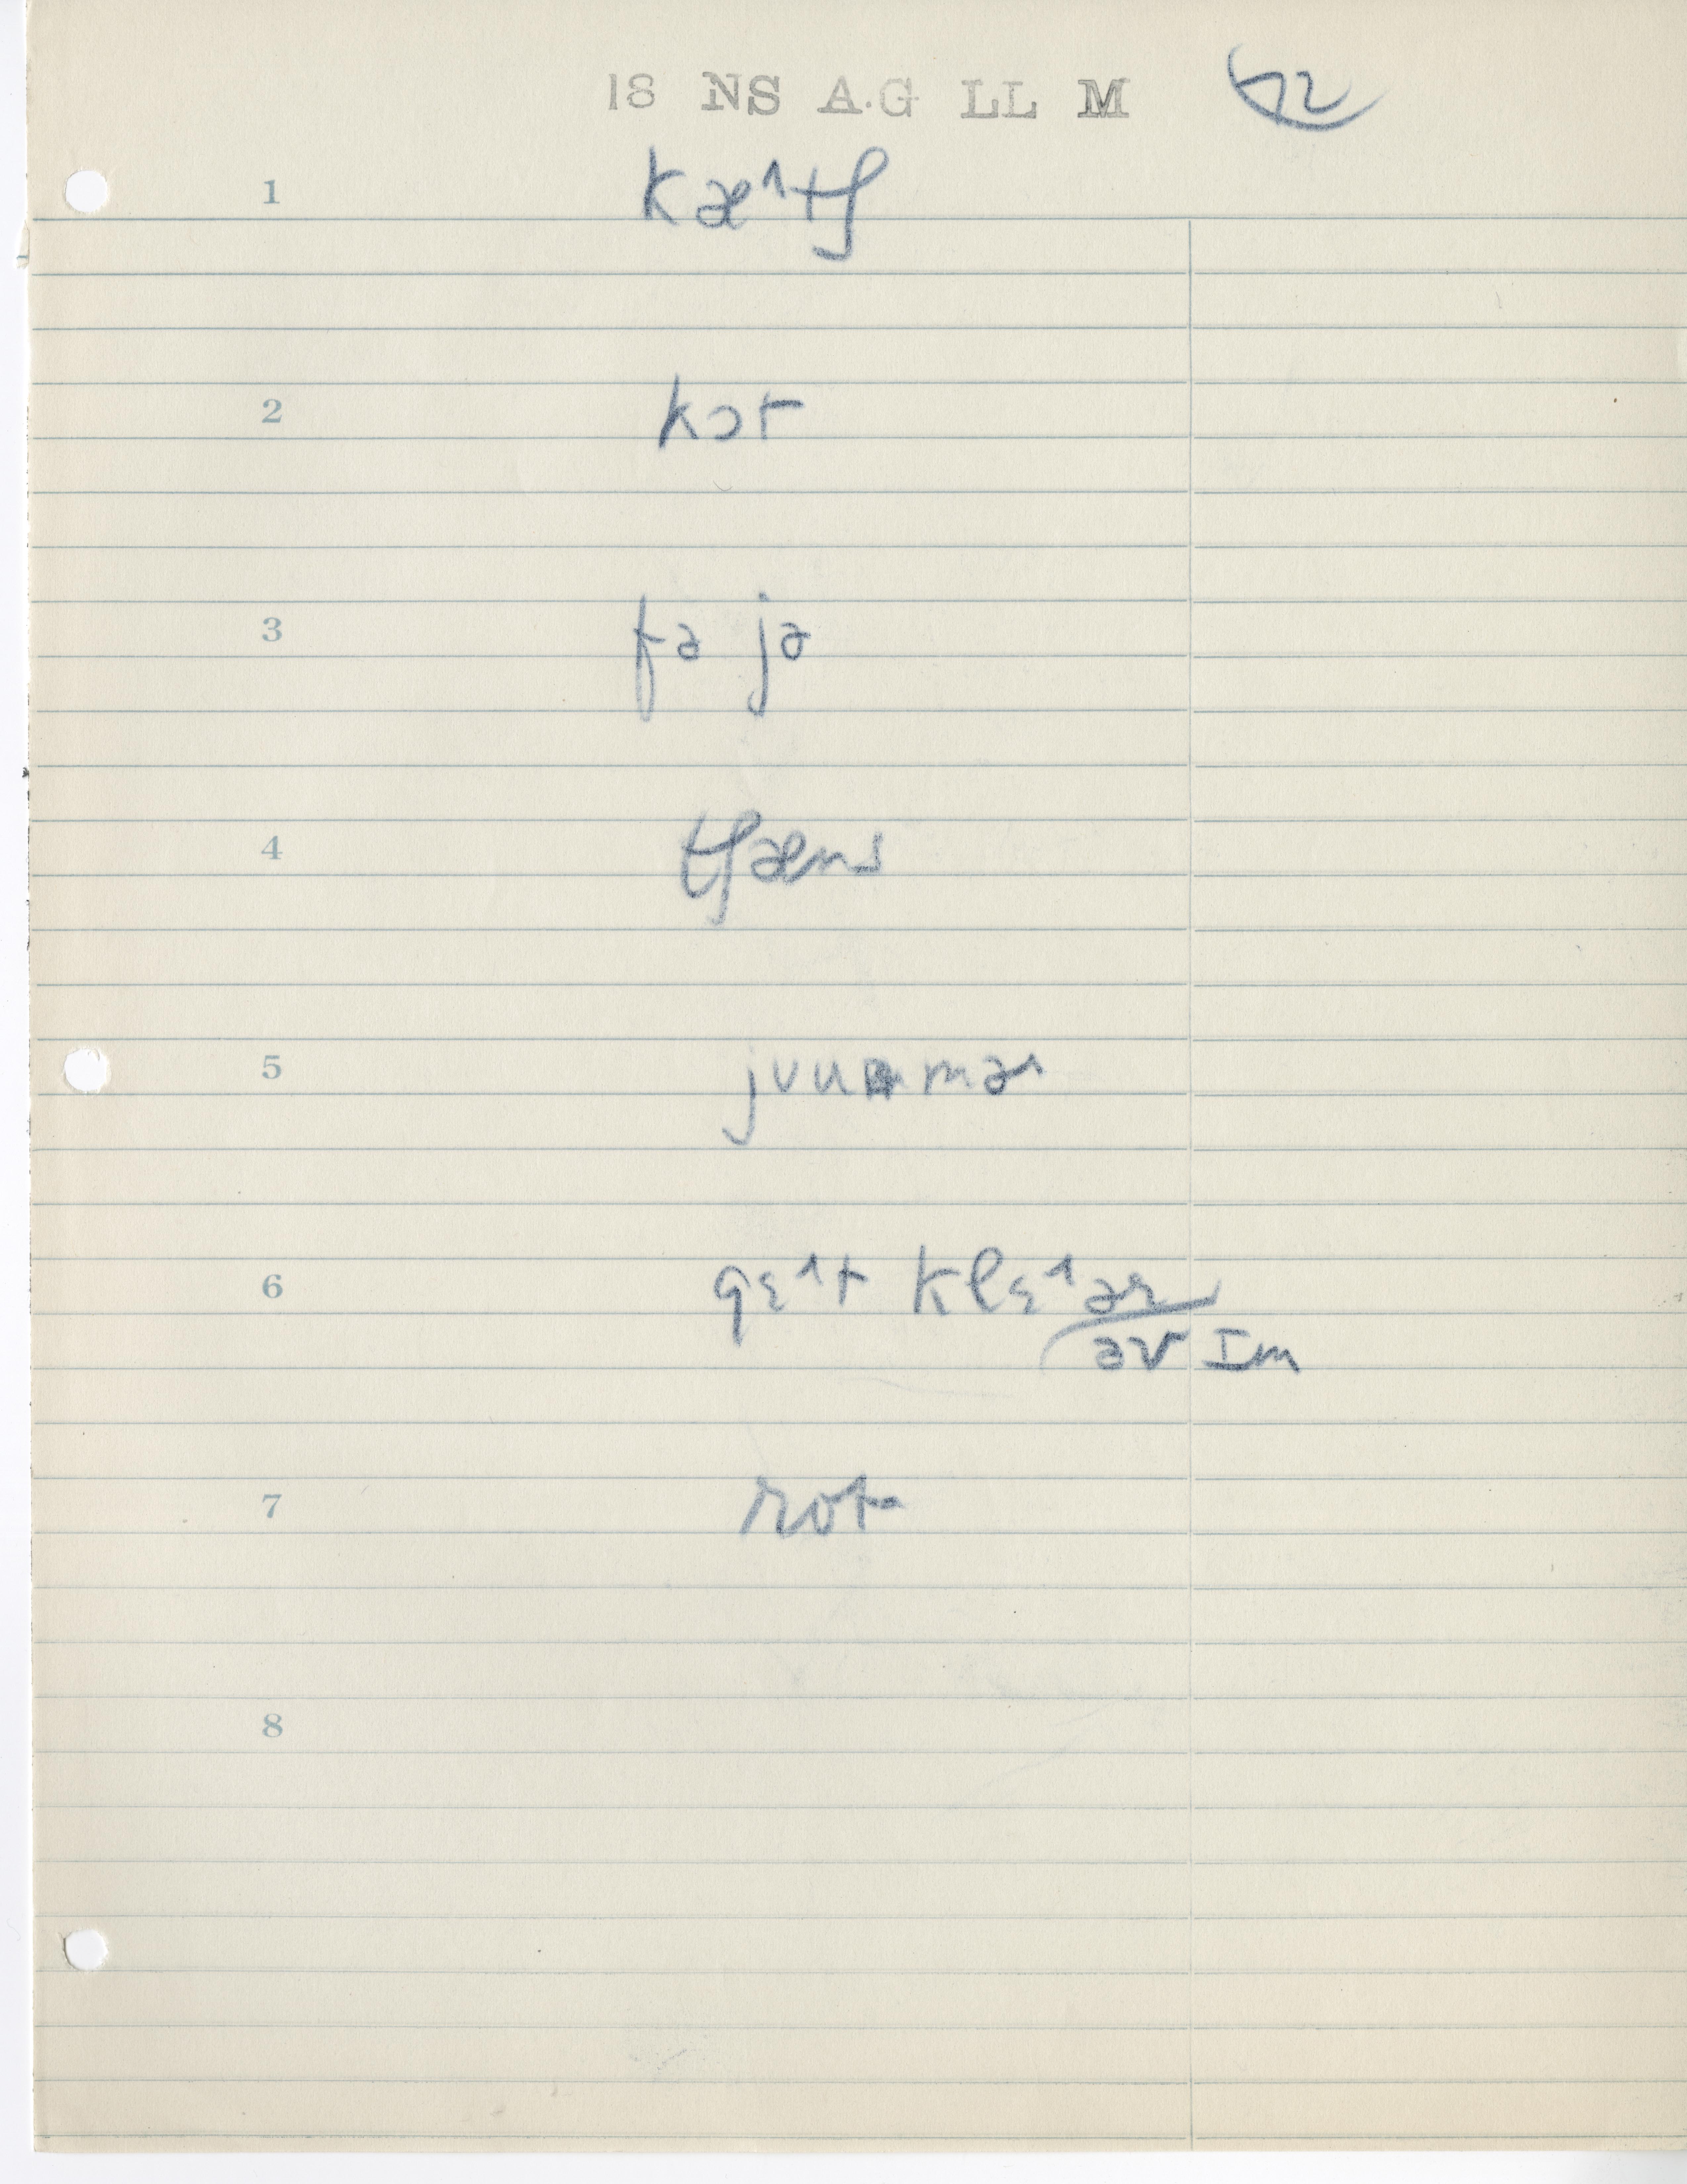 18 NS A.G LL M 72
1 kæ^tʃ
2 kɔt
3 fə jə
4 tʃæns
5
6 gɛ^t klɛ^əɹ
əv ɪm
7 rot
8